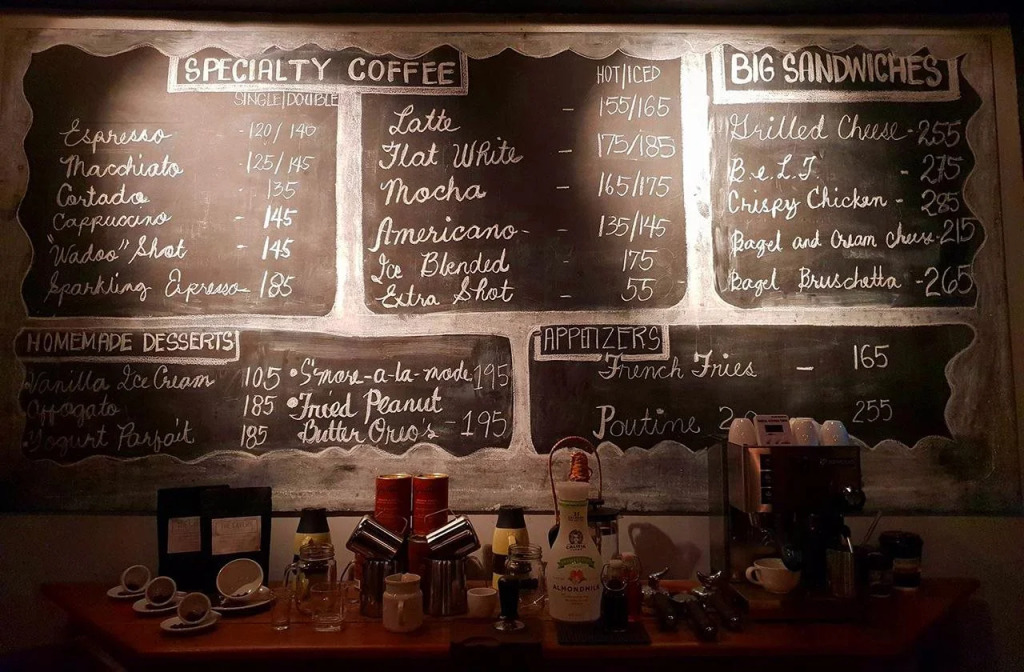 SPECIALTY COFFEE
SINGLE/DOUBLE
Espresso - 120/140
Macchiato - 125/145
Cortado - 135
Cappuccino - 145
"Wadoo" Shot - 145
Sparkling Espresso - 185
HOT/ICED
Latte - 155/165
Flat White - 175/185
Mocha - 165/175
Americano - 135/145
Ice Blended - 175
Extra Shot - 55
BIG SANDWICHES
Grilled Cheese - 255
B.e.L.T. - 275
Crispy Chicken - 285
Bagel and Cream cheese - 215
Bagel Bruschetta - 265
HOMEMADE DESSERTS
Vanilla Ice Cream 105
Affogato 185
Yogurt Parfait 185
• S'more-a-la-mode 195
• Fried Peanut
Butter Oreo's - 195
APPETIZERS
French Fries - 165
Poutine 255
CALIFIA
ALMONDMILK